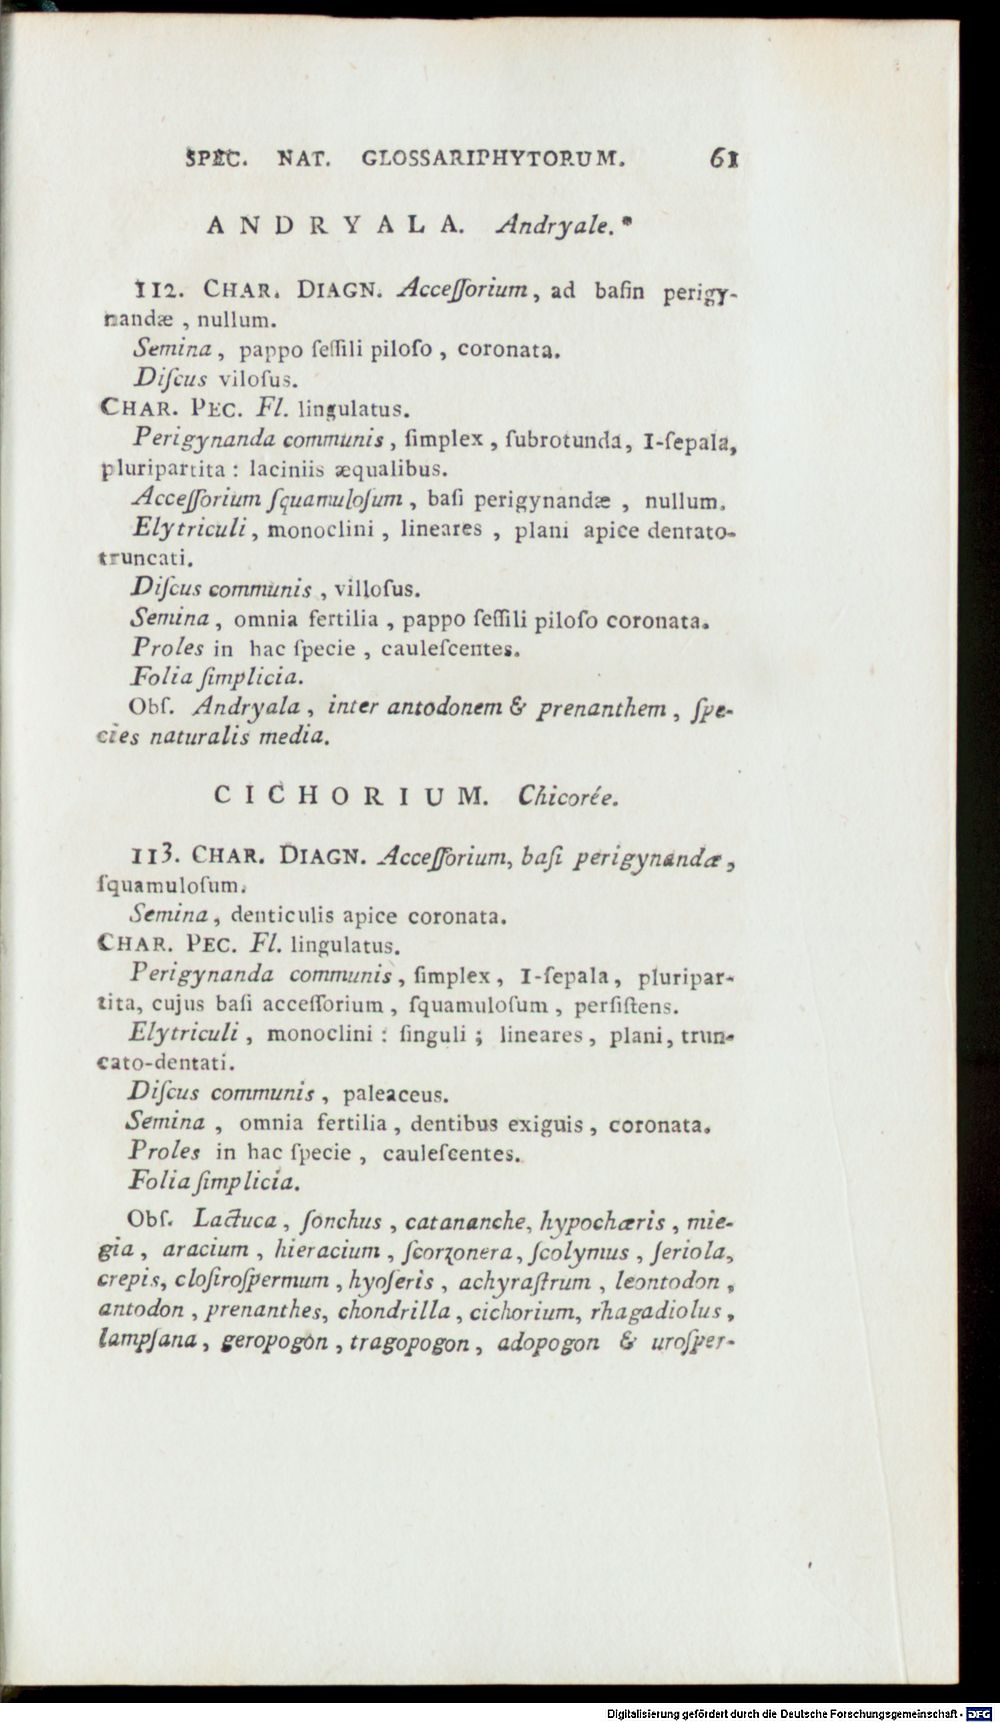 SPEC. NAT. GLOSSARIPHYTORUM. 61
ANDRYALA. Andryale.*
112. CHAR. DIAGN. Acceſſorium, ad baſin perigy-
nandæ, nullum.
Semina, pappo ſeſſili piloſo, coronata.
Diſcus viloſus.
CHAR. PEC. Fl. lingulatus.
Perigynanda communis, ſimplex, ſubrotunda, 1-ſepala,
pluripartita: laciniis æqualibus.
Acceſſorium ſquamuloſum, baſi perigynandæ, nullum.
Elytriculi, monoclini, lineares, plani apice dentato-
truncati.
Diſcus communis, villoſus.
Semina, omnia fertilia, pappo ſeſſili piloſo coronata.
Proles in hac ſpecie, cauleſcentes.
Folia ſimplicia.
Obſ. Andryala, inter antodonem & prenanthem, ſpe-
cies naturalis media.
CICHORIUM. Chicorée.
113. CHAR. DIAGN. Acceſſorium, baſi perigynandæ,
ſquamuloſum.
Semina, denticulis apice coronata.
CHAR. PEC. Fl. lingulatus.
Perigynanda communis, ſimplex, 1-ſepala, pluripar-
tita, cujus baſi acceſſorium, ſquamuloſum, perſiſtens.
Elytriculi, monoclini: ſinguli; lineares, plani, trun-
cato-dentati.
Diſcus communis, paleaceus.
Semina, omnia fertilia, dentibus exiguis, coronata.
Proles in hac ſpecie, cauleſcentes.
Folia ſimplicia.
Obſ. Lactuca, ſonchus, catananche, hypochæris, mie-
gia, aracium, hieracium, ſcorzonera, ſcolymus, ſeriola,
crepis, cloſiroſpermum, hyoſeris, achyraſtrum, leontodon,
antodon, prenanthes, chondrilla, cichorium, rhagadiolus,
lampſana, geropogon, tragopogon, adopogon & uroſper-
Digitalisierung gefördert durch die Deutsche Forschungsgemeinschaft - DFG